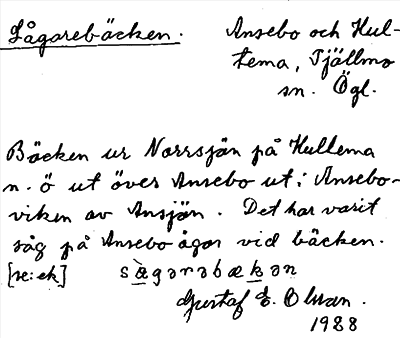 Sågarebäcken. Ansebo och Hul-
tema, Tjällmo
sn. Ögl.
Bäcken ur Norrsjön på Hullema
n. ö ut över Ansebo ut i Ansebo-
viken av Ansjön. Det har varit
såg på Ansebo ägor vid bäcken.
[se: ek] sàgarabækan
Gustaf E. Olsson.
1988